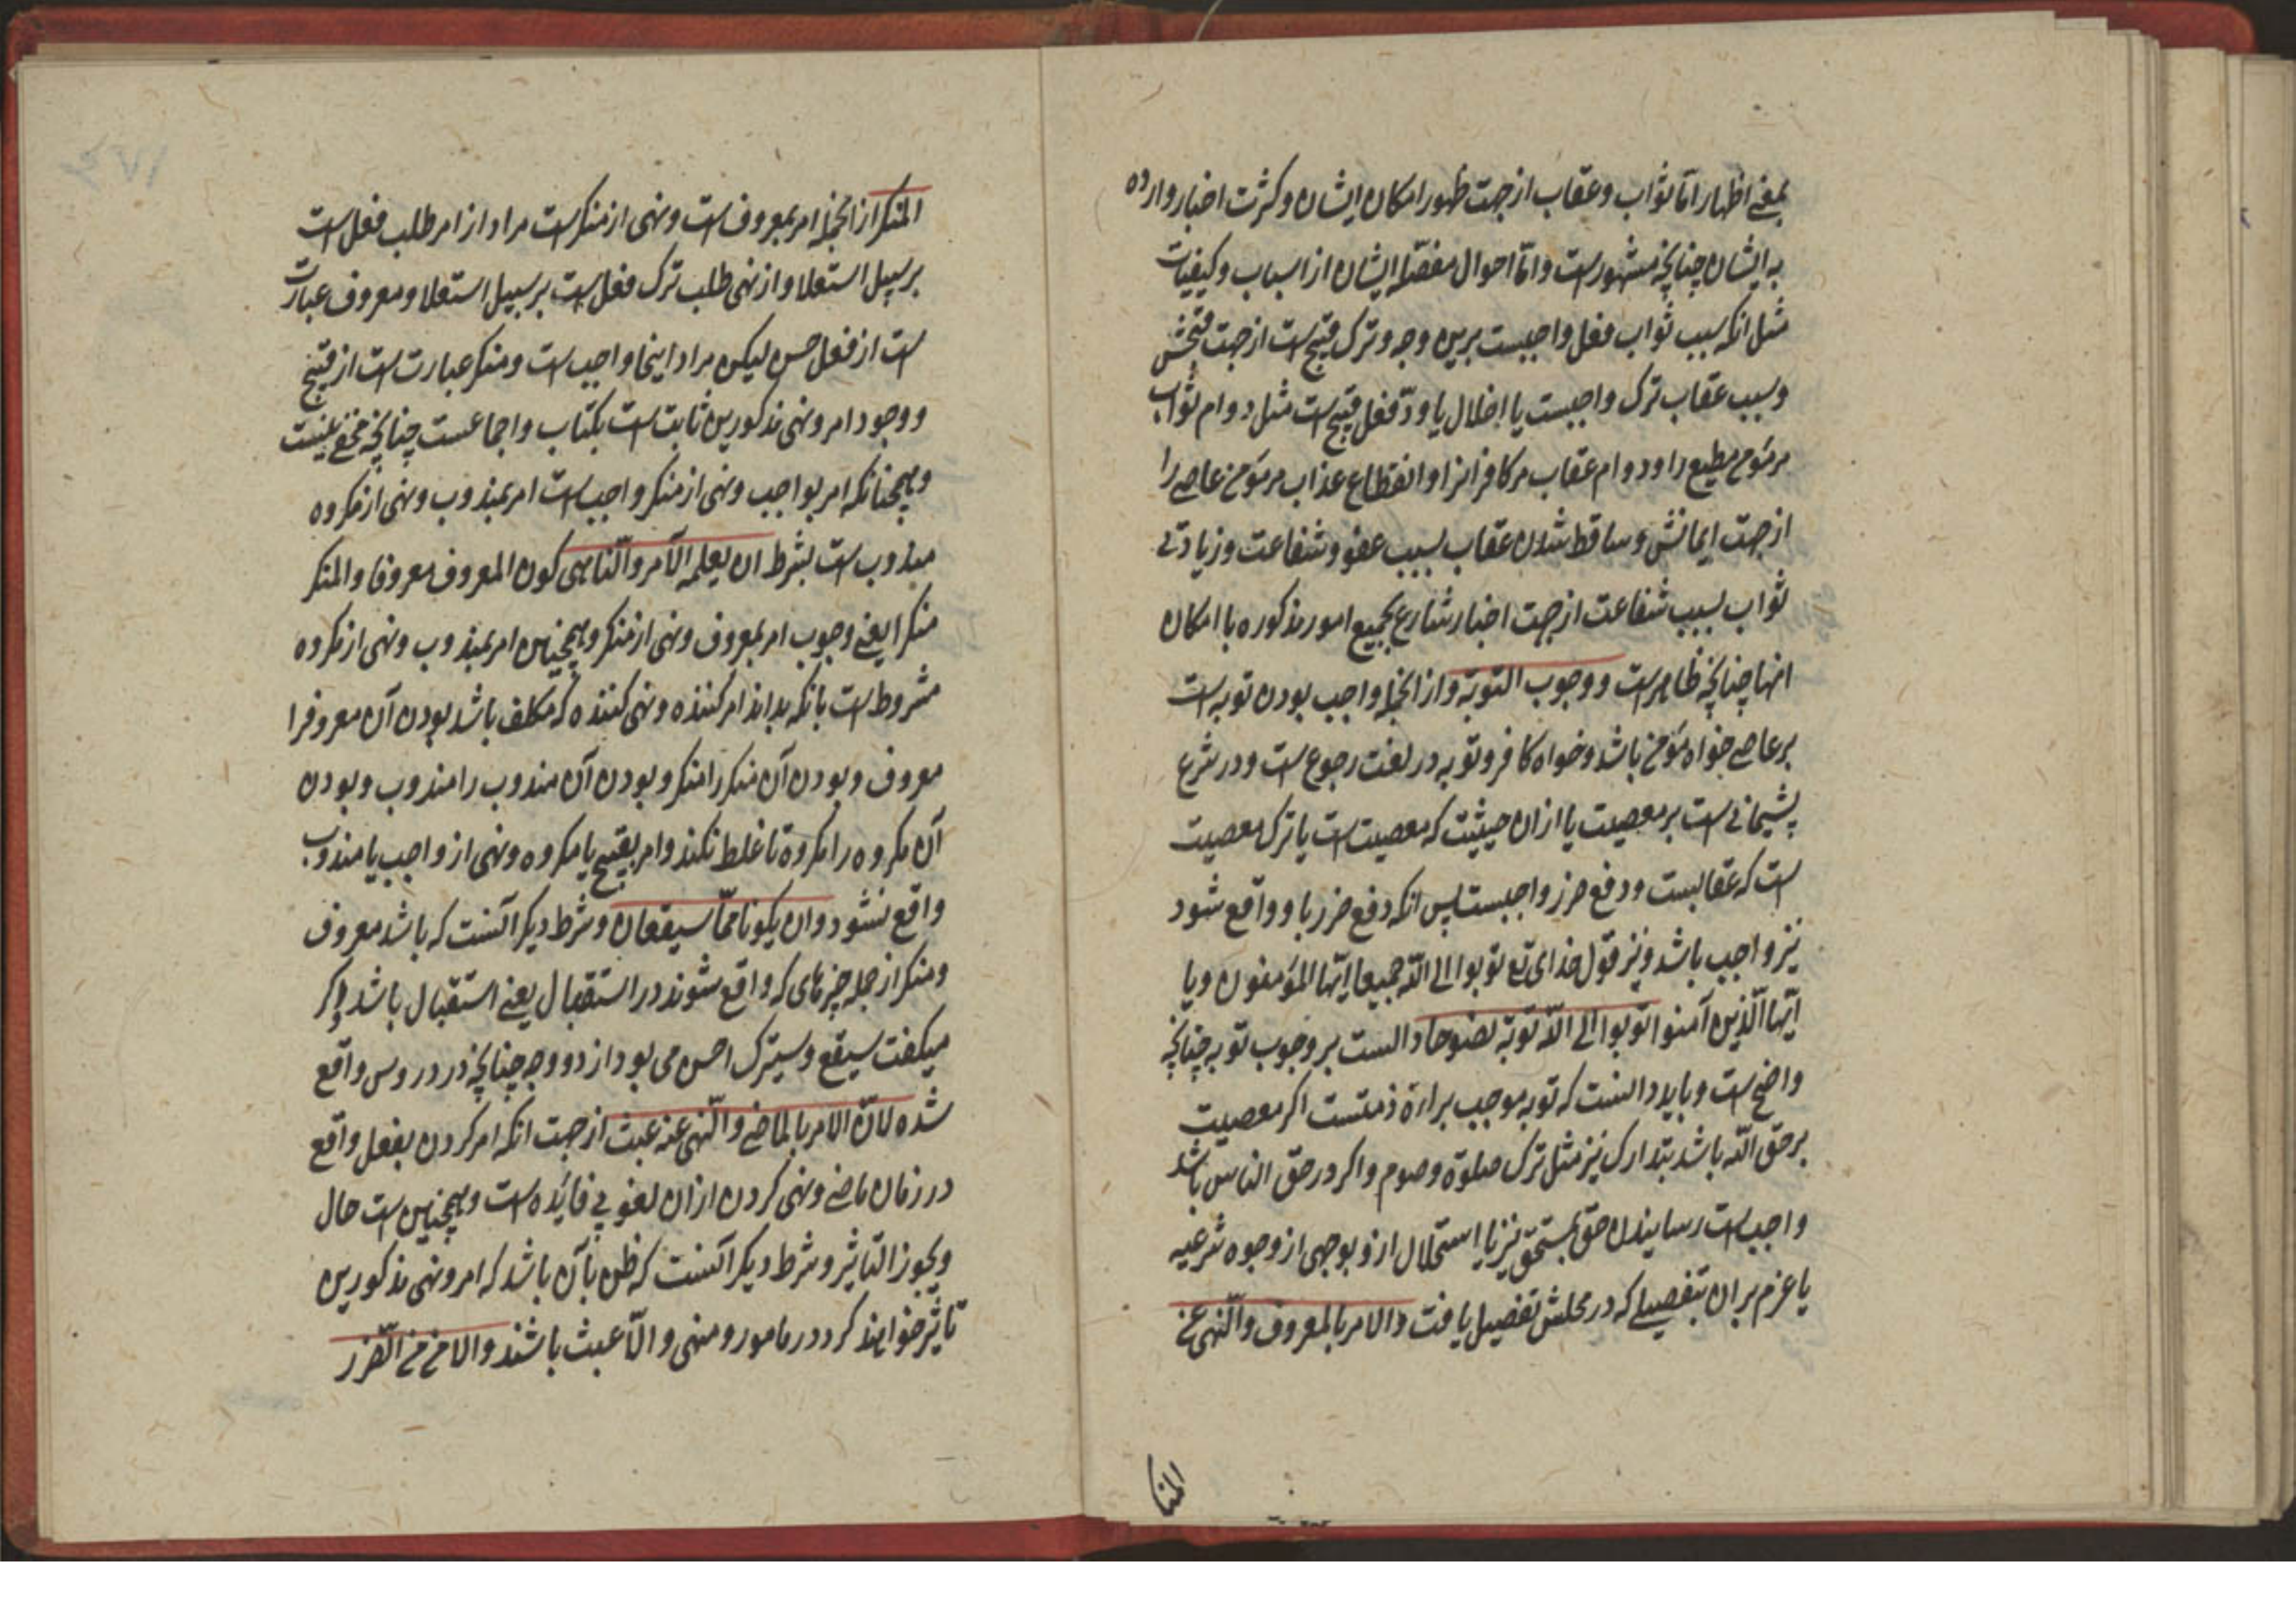 بمعنی اظهار اما ثواب و عقاب از جهت ظهور امکان ایشان و کثرت اخبار وارده
به ایشان چنانچه مشهورست و اما احوال مفصله ایشان از اسباب و کیفیات
مثل انکه سبب ثواب فعل واجبست برین وجه و ترک قبیح است از جهت قبحش
و سبب عقاب ترک واجبست یا اخلال باو و فعل قبیح است مثل دوام ثواب
مر مؤمن مطیع را و دوام عقاب مر کافرانرا و انقطاع عذاب مر مؤمن عاصی را
از جهت ایمانش و ساقط شدن عقاب بسبب عفو و شفاعت و زیادتی
ثواب بسبب شفاعت از جهت اخبار شارع بجمیع امور مذکوره با امکان
انها چنانچه ظاهرست و وجوب التوبة و از انجمله واجب بودن توبه است
بر عاصی خواه مؤمن باشد و خواه کافر و توبه در لغت رجوع است و در شرع
پشیمانی است بر معصیت یا ازان حیثیت که معصیت است یا ترک معصیت
است که عقابست و دفع ضرر واجبست پس انکه دفع ضرر باو واقع شود
نیز واجب باشد و نیز قول خدای تع توبوا الی الله جمیعا ایها المؤمنون و یا
ایها الذین آمنوا توبوا الی الله توبة نصوحا دالست بر وجوب توبه چنانچه
واضح است و باید دانست که توبه موجب براءة ذمتست اکر معصیت
بر حق الله باشد بتدارک نیز مثل ترک صلوة و صوم و اکر در حق الناس باشد
واجب است رسانیدن حق بمستحق نیز یا استحلال ازو بوجهی از وجوه شرعیه
یا عزم بر ان بتفصیلی که در محلش تفصیل یافت والامر بالمعروف والنهی عن
المنکر
المنکر از انجمله امر بمعروف است و نهی از منکرست مراد از امر طلب فعل است
بر سبیل استعلا و از نهی طلب ترک فعل است بر سبیل استعلا و معروف عبارت
است از فعل حسن لیکن مراد اینجا واجب است و منکر عبارت است از قبیح
و وجوب امر و نهی مذکورین ثابت است بکتاب و اجماعست چنانچه مخفی نیست
و همچنانکه امر بواجب و نهی از منکر واجب است امر بمندوب و نهی از مکروه
مندوب است بشرط ان یعلم الآمر والناهی کون المعروف معروفا والمنکر
منکرا یعنی وجوب امر بمعروف و نهی از منکر و همچنین امر بمندوب و نهی از مکروه
مشروط است بانکه بداند امر کننده و نهی کننده که مکلف باشد بودن آن معروفرا
معروف و بودن آن منکر را منکر و بودن آن مندوب را مندوب و بودن
آن مکروه را مکروه تا غلط نکند و امر بقبیح یا مکروه و نهی از واجب یا مندوب
واقع نشود وان یکونا مما سیقعان و شرط دیکر آنست که باشد معروف
و منکر از جمله چیزهای که واقع شوند در استقبال یعنی استقبال باشد و اکر
میکفت سیقع و سیترک احسن می بود از دو وجه چنانچه در دروس واقع
شده لان الامر بالماضی والنهی عنه عبث از جهت انکه امر کردن بفعل واقع
در زمان ماضی و نهی کردن ازان لغو بی فایده است و همچنین است حال
ویجوز التاثیر و شرط دیکر آنست که ظن بآن باشد که امر و نهی مذکورین
تاثیر خواهند کرد در مامور و منهی و الا عبث باشند والامن من الضرر